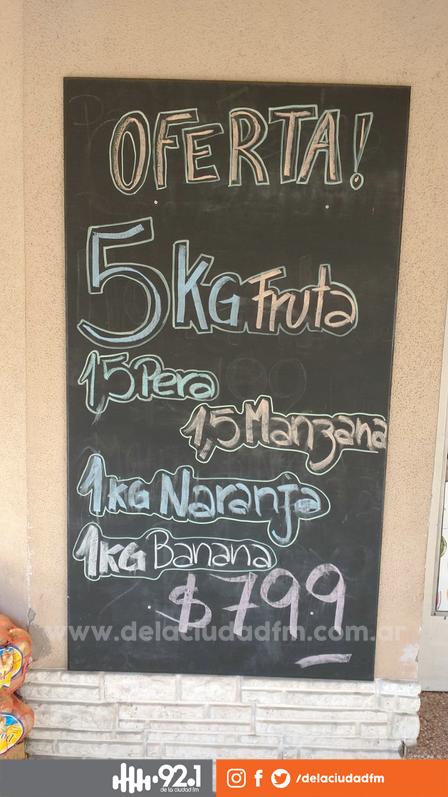 OFERTA!
5KG Fruta
1,5 Pera
1,5 Manzana
1KG Naranja
1KG Banana
$799
www.delaciudadfm.com.ar
92.1
de la ciudad fm
/delaciudadfm